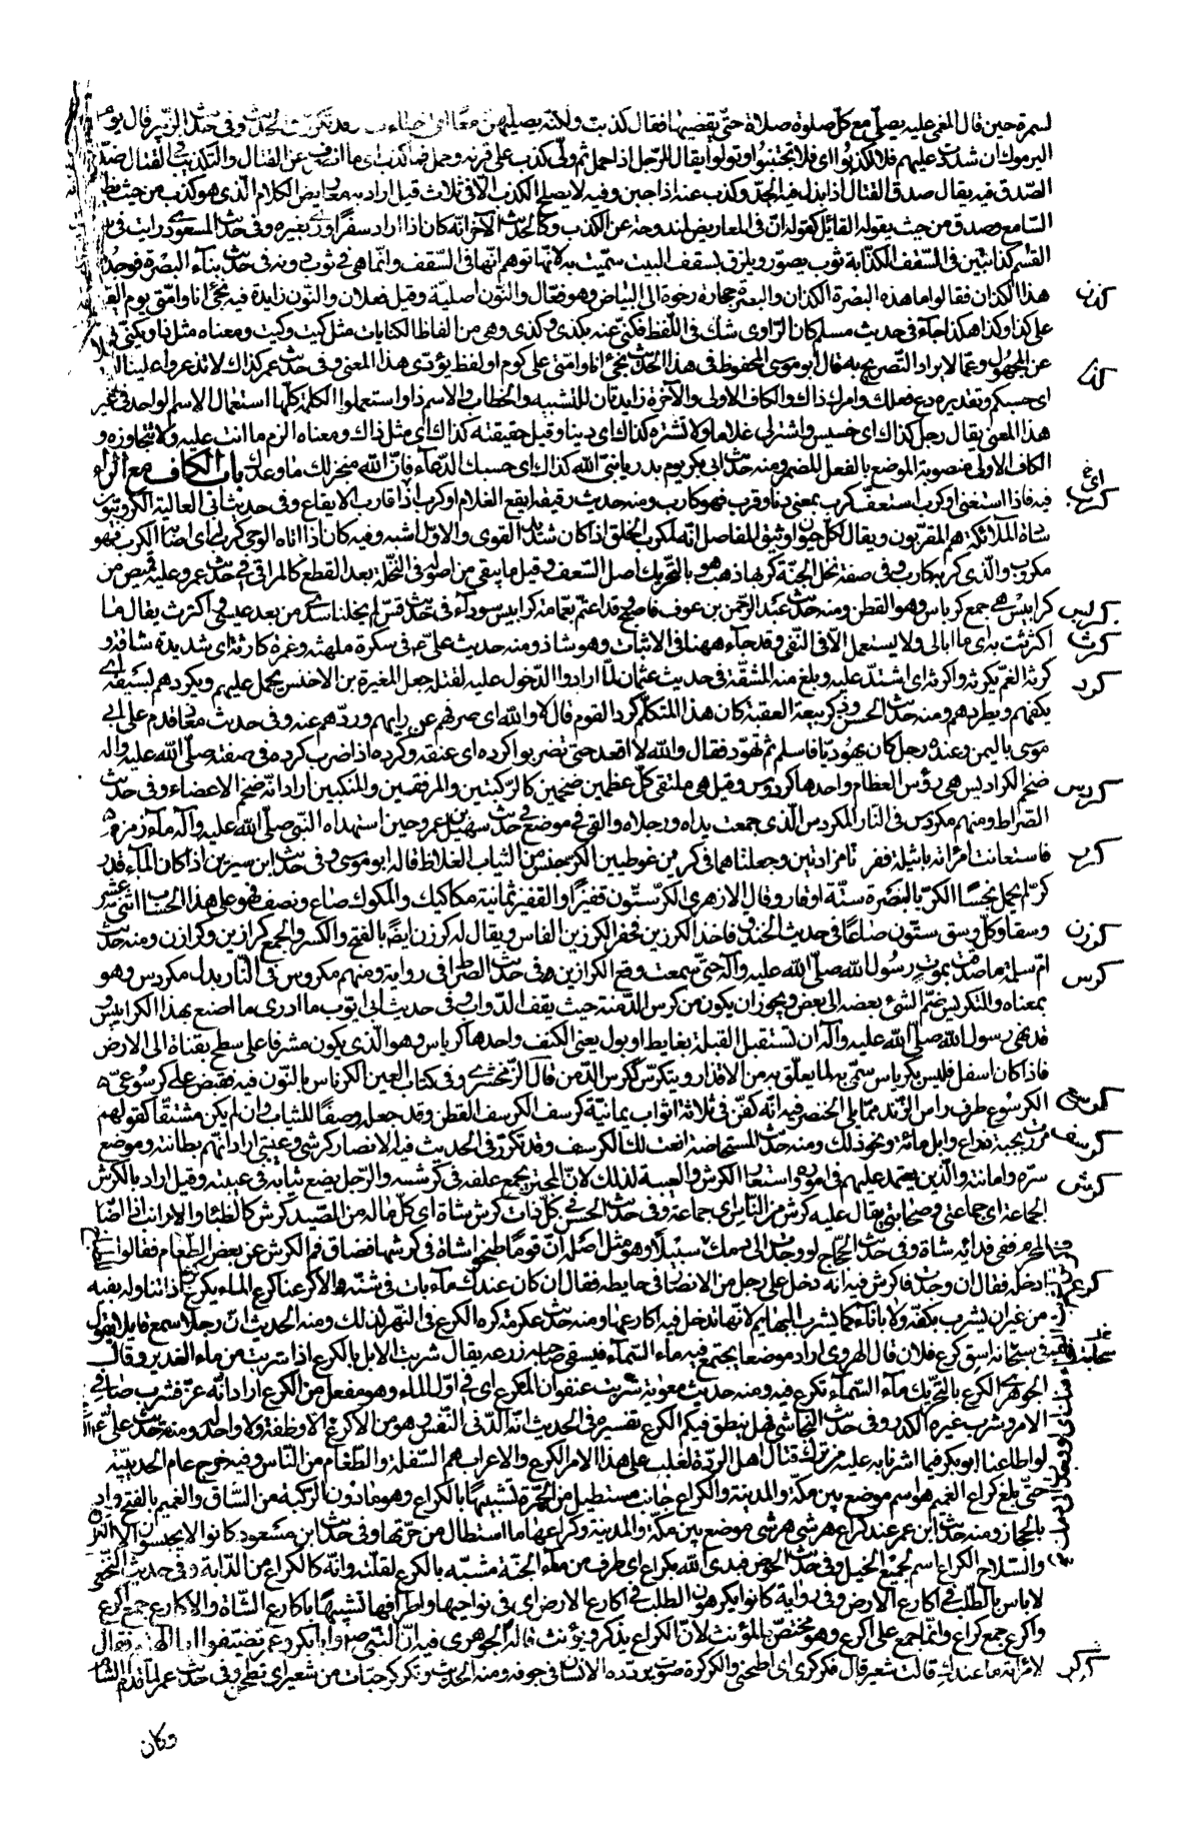 لسمرة حين قال المغمى عليه يصلى مع كل صلوة صلاة حتى يقضيها فقال كذبت ولكنه يصليهن معا وفى حديث الزبير قال يوم
اليرموك ان شددت عليهم فلا تكذبوا اى فلا تجبنوا وتولوا يقال للرجل اذا حمل ثم ولى كذب عن قرنه وحمل فما كذب اى ما انصرف عن القتال والتكذيب فى القتال ضد
الصدق فيه يقال صدق القتال اذا بذل فيه الجد وكذب عنه اذا جبن وفيه لا يصلح الكذب الا فى ثلاث قيل اراد به معاريض الكلام الذى هو كذب من حيث يظنه
السامع وصدق من حيث يقوله القائل كقوله ان فى المعاريض لمندوحة عن الكذب وكالحديث الآخر انه كان اذا اراد سفرا ورى بغيره وفى حديث المسعودى رايت فى بيت
القسم كذابتين فى السقف الكذابة ثوب يصور ويلزق بسقف البيت سميت به لانها توهم انها فى السقف وانما هى فى ثوب دونه فى حديث بناء البصرة فوجدوا
كذن
هذا الكذان فقالوا ما هذه البصرة الكذان والبصرة حجارة رخوة الى البياض وهو فعال والنون اصلية وقيل فعلان والنون زايدة فيه نجئ انا وامتى يوم القيمة
على كذا وكذا هكذا جاء فى حديث مسلم كان الراوى شك فى اللفظ فكنى عنه بكذى وكذى وهى من الفاظ الكنايات مثل كيت وكيت ومعناه مثل ذا ويكنى بها
كذا
عن المجهول وعما لا يراد التصريح به قال ابو موسى المحفوظ فى هذا الحديث نجئ انا وامتى على كوم او لفظ يؤدى هذا المعنى وفى حديث عمر كذاك لا تذعروا علينا ابلنا
اى حسبكم وتقديره دع فعلك وامرك ذاك والكاف الاولى والآخرة زايدتان للتشبيه والخطاب والاسم ذا واستعملوا الكلمة كلها استعمال الاسم الواحد فى غير
هذا المعنى يقال رجل كذاك اى خسيس واشتر لى غلاما ولا تشتره كذاك اى دينا وقيل حقيقة كذاك اى مثل ذاك ومعناه الزم ما انت عليه ولا تتجاوزه و
الكاف الاولى منصوبة الموضع بالفعل المضمر ومنه حديث ابى بكر يوم بدر يا نبى الله كذاك اى حسبك الدعاء فان الله منجز لك ما وعدك باب الكاف مع الراء
كرب
فيه فاذا استغنى او كرب استعف كرب بمعنى دنا وقرب فهو كارب ومنه حديث رقيقة ايفع الغلام او كرب اذا قارب الايفاع وفى حديث ابى العالية الكروبيون
سادة الملائكة هم المقربون ويقال لكل حيوان وثيق المفاصل انه لمكرب الخلق اذا كان شديد القوى والاول اشبه وفيه كان اذا اتاه الوحى كرب له اى اصابه الكرب فهو
مكروب والذى كربه كارب وفى صفة نخل الجنة كربها ذهب هو بالتحريك اصل السعف وقيل ما يبقى من اصوله فى النخلة بعد القطع كالمراقى فى حديث عمر وعليه قميص من
كربس
كرابيس هى جمع كرباس وهو القطن ومنه حديث عبد الرحمن بن عوف فاصبح وقد اعتم بعمامة كرابيس سوداء فى حديث قس لم يخلنا سدى من بعد عيسى واكترث يقال ما
كرث
اكترثت به اى ما ابالى ولا يستعمل الا فى النفى وقد جاء ههنا فى الاثبات وهو شاذ ومنه حديث على ع فى سكرة ملهثة وغمرة كارثة اى شديدة شاقة و
كرد
كرثه الغم يكرثه واكرثه اى اشتد عليه وبلغ منه المشقة فى حديث عثمان لما ارادوا الدخول عليه لقتله جعل المغيرة بن الاخنس يحمل عليهم ويكردهم بسيفه اى
يكفهم ويطردهم ومنه حديث الحسن وذكر بيعة العقبة كان هذا المتكلم كرد القوم قال لا والله اى صرفهم عن رايهم وردهم عنه وفى حديث معاذ قدم على ابى
موسى باليمن وعنده رجل كان يهوديا فاسلم ثم تهود فقال والله لا اقعد حتى تضربوا كرده اى عنقه وكرده اذا ضرب كرده فى صفته صلى الله عليه واله
كردس
ضخم الكراديس هى رؤس العظام واحدها كردوس وقيل هى ملتقى كل عظمين ضخمين كالركبتين والمرفقين والمنكبين اراد انه ضخم الاعضاء وفى حديث
الصراط ومنهم مكردس فى النار المكردس الذى جمعت يداه ورجلاه والقى فى موضع فى حديث سهيل بن عمرو حين استهداه النبى صلى الله عليه وآله ماء زمزم
كرر
فاستعانت امراته باثيلة ففرتا مزادتين وجعلتاهما فى كرين غوطيين الكر جنس من الثياب الغلاظ قاله ابو موسى وفى حديث ابن سيرين اذا كان الماء قدر
كر لم يحمل نجسا الكر بالبصرة ستة اوقار وقال الازهرى الكر ستون قفيزا والقفيز ثمانية مكاكيك والمكوك صاع ونصف فهو على هذا الحساب اثنى عشر
كرزن
وسقا وكل وسق ستون صاعا فى حديث الخندق فاخذ الكرزين فحفر الكرزين الفاس ويقال له كرزن ايضا بالفتح والكسر والجمع كرازين وكرازن ومنه حديث
كرس
ام سلمة ما صدقت بموت رسول الله صلى الله عليه وآله حتى سمعت وقع الكرازين فى حديث الصراط فى رواية ومنهم مكروس فى النار بدل مكردس وهو
بمعناه والتكريس ضم الشئ بعضه الى بعض ويجوز ان يكون من كرس الدمنة حيث يقف الدواب وفى حديث ابى ايوب ما ادرى ما اصنع بهذا الكراييس
قد نهى رسول الله صلى الله عليه وآله ان تستقبل القبلة بغايط او بول يعنى الكنف واحدها كرياس وهو الذى يكون مشرفا على سطح بقناة الى الارض
فاذا كان اسفل فليس بكرياس سمى به لما يعلق به من الاقذار ويتكرس ككرس الدمن قال الزمخشرى وفى كتاب العين الكرناس بالنون فيه فقبض على كرسوعى
كرسع
الكرسوع طرف راس الزند مما يلى الخنصر فيه انه كفن فى ثلاثة اثواب يمانية كرسف الكرسف القطن وقد جعله وصفا للثياب وان لم يكن مشتقا كقولهم
كرسف
مررت بحية ذراع وابل مائة ونحو ذلك ومنه حديث المستحاضة انعت لك الكرسف وقد تكرر فى الحديث فيه الانصار كرشى وعيبتى اراد انهم بطانته وموضع
كرش
سره وامانته والذين يعتمد عليهم فى اموره واستعار الكرش والعيبة لذلك لان المجتر يجمع علفه فى كرشه والرجل يضع ثيابه فى عيبته وقيل اراد بالكرش
الجماعة اى جماعتى وصحابتى يقال عليه كرش من الناس اى جماعة وفى حديث الحسن فى كل ذات كرش شاة اى كل ماله من الصيد كرش كالظباء والارانب اذا اصابه
المحرم ففى فدائه شاة وفى حديث الحجاج لو وجدت الى دمك سبيلا وهو مثل اصله ان قوما طبخوا شاة فى كرشها فضاق فم الكرش عن بعض الطعام فقالوا
كرع
ادخله فقال ان وجدت فاكرش فيه انه دخل على رجل من الانصار فى حايطه فقال ان كان عندك ماء بات فى شنه والا كرعنا كرع الماء يكرع اذا تناوله بفيه
من غير ان يشرب بكفه ولا باناء كما يشرب البهايم لانها تدخل فيه اكارعها ومنه حديث عكرمة كره الكرع فى النهر لذلك ومنه الحديث ان رجلا سمع قايلا يقول
فى سحابة اسق كرع فلان قال الهروى اراد موضعا يجتمع فيه ماء السماء فيسقى صاحبه زرعه يقال شربت الابل بالكرع اذا شربت من ماء الغدير وقال
الجوهرى الكرع بالتحريك ماء السماء تكرع فيه ومنه حديث معوية شربت عنفوان المكرع اى فى اول الماء وهو مفعل من الكرع اراد انه عز فشرب صافى
الامر وشرب غيره الكدر وفى حديث النجاشى فهل ينطق فيكم الكرع تفسيره فى الحديث انه الدنى النفس وهو من الاكرع الاوظفة ولا واحد له ومنه حديث على ع
لو اطاعنا ابو بكر فيما اشرنا به عليه من ترك قتال اهل الردة لغلب على هذا الامر الكرع والاعراب هم السفلة والطغام من الناس وفيه خرج عام الحديبية
حتى بلغ كراع الغميم هو اسم موضع بين مكة والمدينة والكراع جانب مستطيل من الحرة تشبيها بالكراع وهو ما دون الركبة من الساق والغميم بالفتح واد
بالحجاز ومنه حديث ابن عمر عند كراع هرشى هرشى موضع بين مكة والمدينة وكراعها ما استطال من حرتها وفى حديث ابن مسعود كانوا لا يحبسون الا الكراع
والسلاح الكراع اسم لجميع الخيل وفى حديث الحوض فبدى الله بكراع اى طرف من ماء الجنة مشبه بالكراع لقلته وانه كالكراع من الدابة وفى حديث النخعى
لا باس بالطلب فى اكارع الارض وفى رواية كانوا يكرهون الطلب فى اكارع الارض اى فى نواحيها واطرافها تشبيها باكارع الشاة والاكارع جمع اكرع
واكرع جمع كراع وانما جمع على اكرع وهو مختص بالمؤنث لان الكراع يذكر ويؤنث قاله الجوهرى فيه ان النبى ص وابا بكر وعمر تضيفوا ابا الهيثم فقال
كركر
لامراته ما عندك قالت شعير قال فكركرى اى اطحنى والكركرة صوت يردده الانسان فى جوفه ومنه الحديث وتكركر حبات من شعير اى تطحن وفى حديث عمر لما قدم الشام
وكان